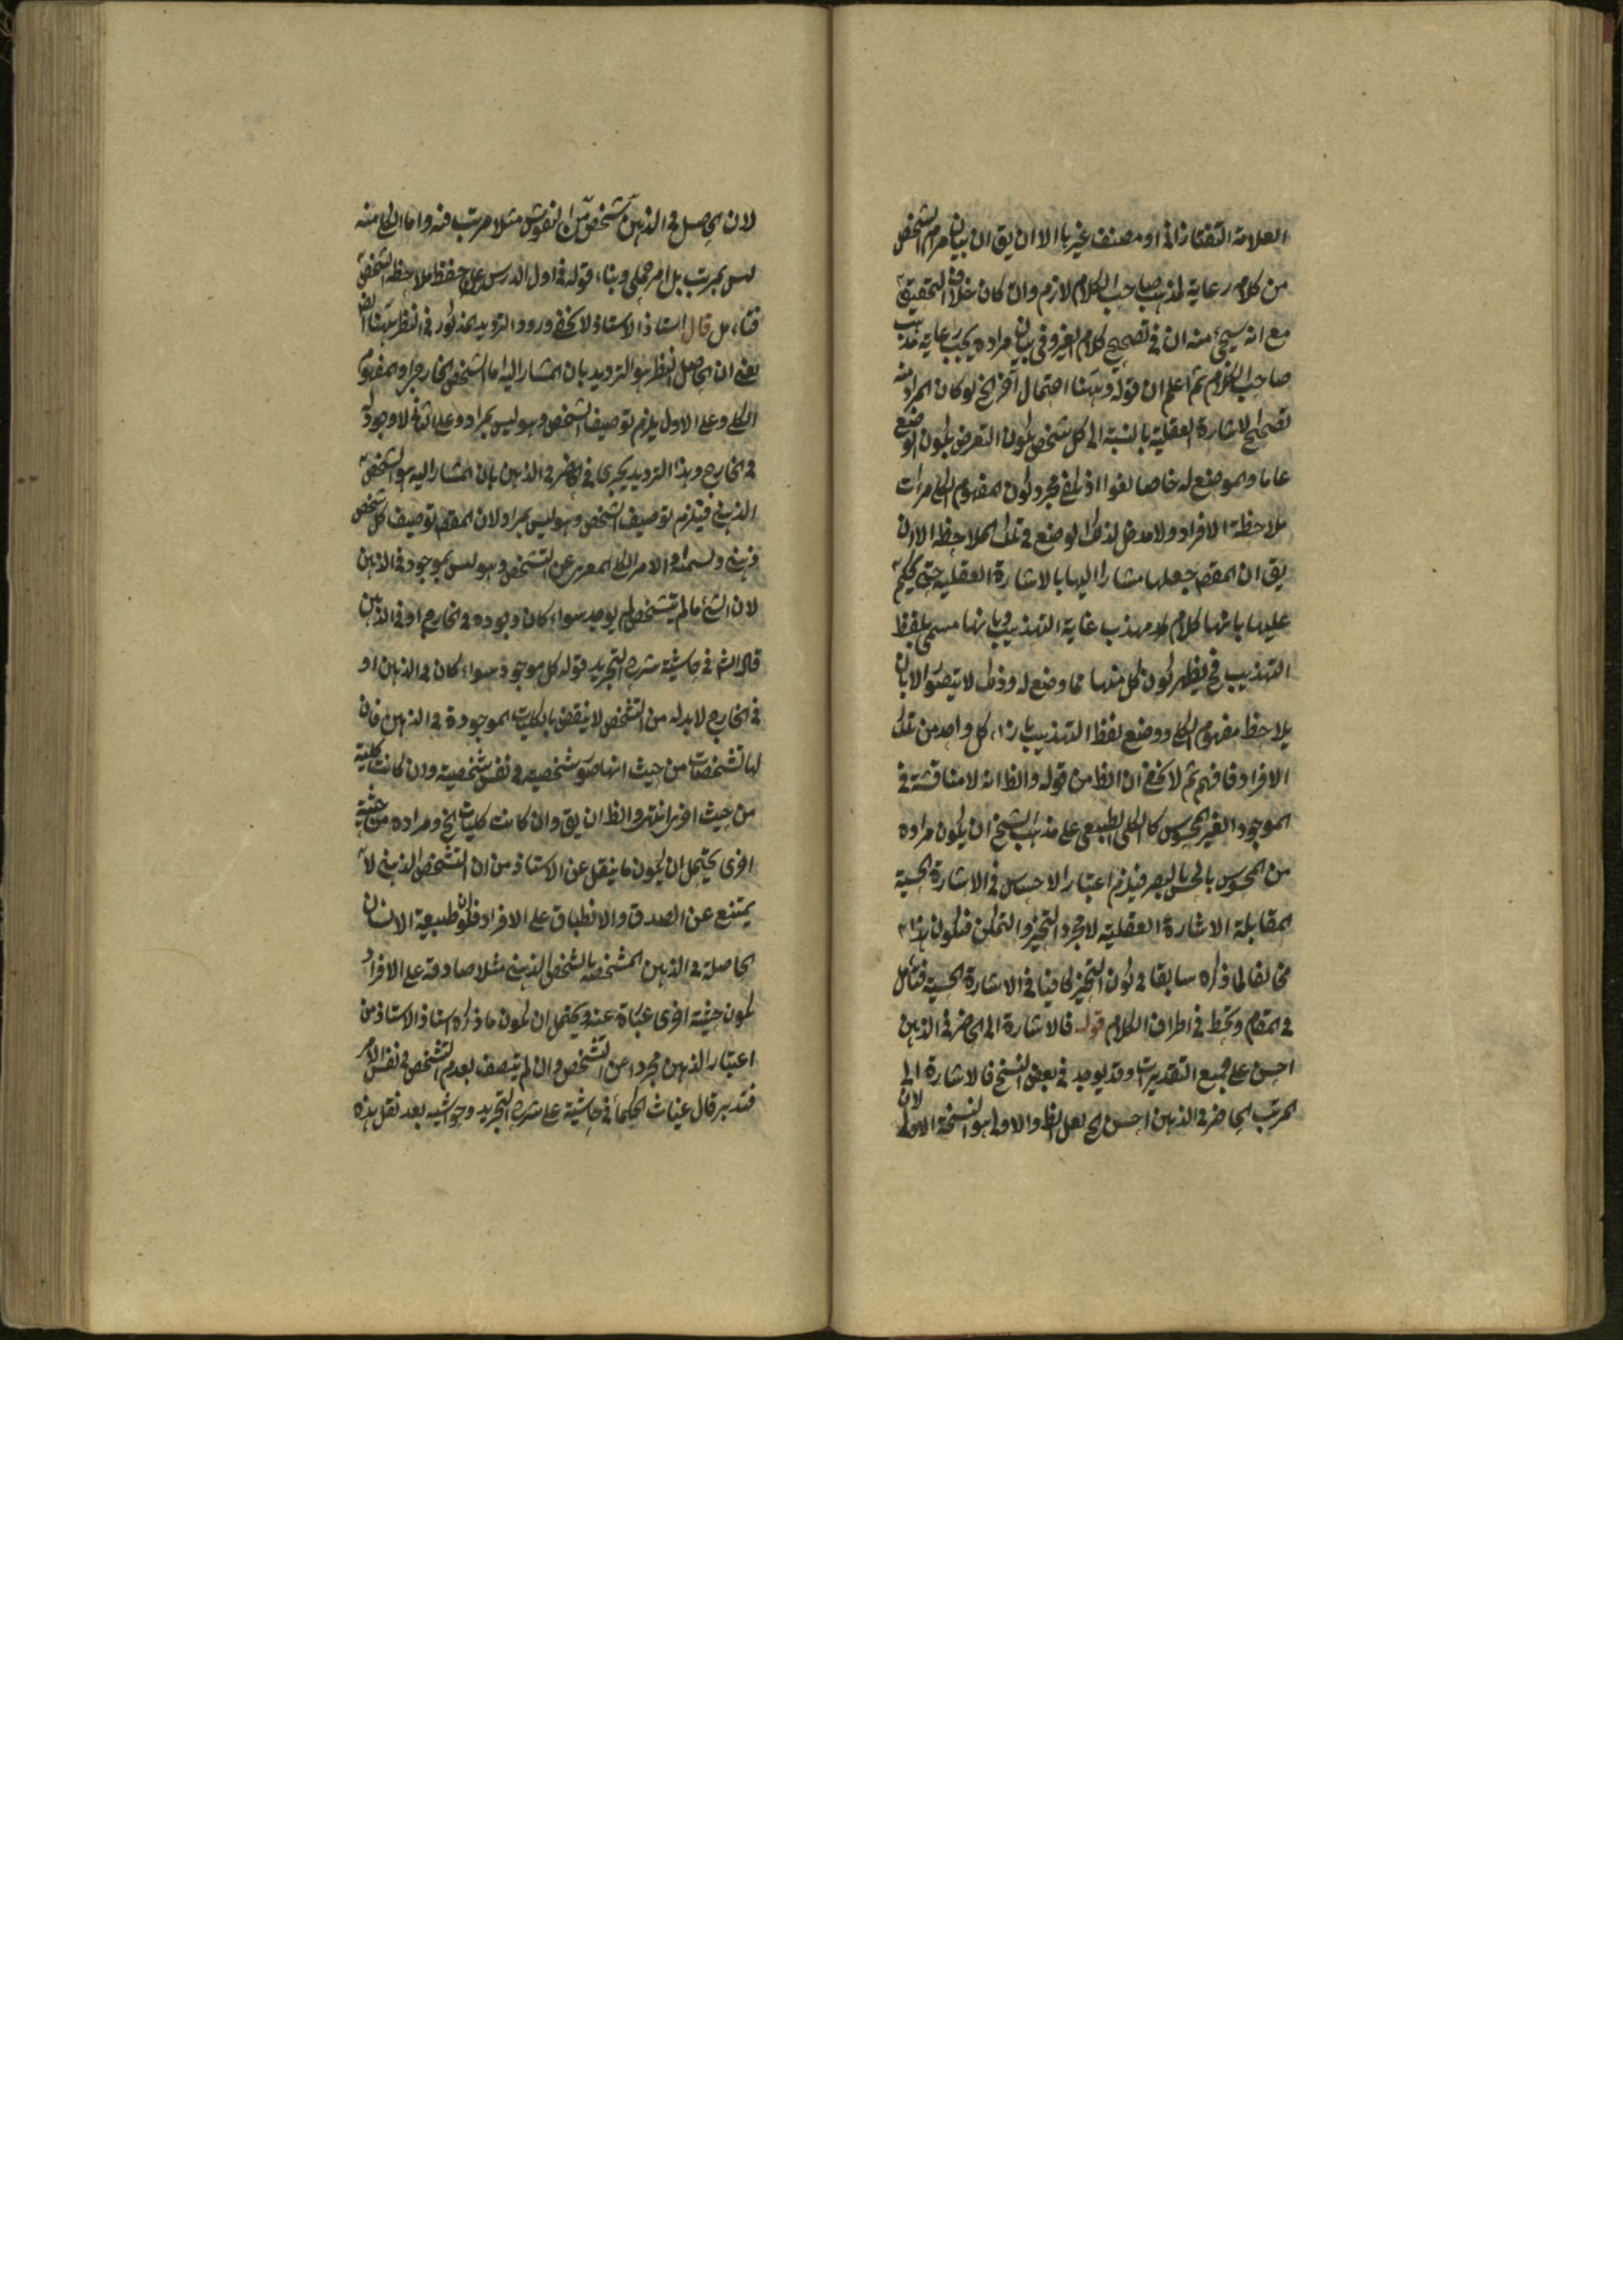 العلامة التفتازانى او مصنف غيرها الا ان يق ان بيان مرام الشخص
من كلام رعاية لمذهب صاحب الكلام لازم وان كان خلاف التحقيق
مع انه سيجئ منه ان فى تصحيح كلام الغير وفى بيان مراده يجب رعاية مذهب
صاحب الكلام ثم اعلم ان قوله وههنا احتمال آخر الخ لو كان المراد منه
تصحيح الاشارة العقلية بالنسبة الى كل شخص يكون التعرض بكون الوضع
عاما والموضوع له خاصا لغوا اذ يكفى مجرد كون المفهوم الكلى مرات
ملاحظة الافراد ولا مدخل لذلك الوضع فى تلك الملاحظة الا ان
يق ان المقص جعلها مشارا اليها بالاشارة العقلية حتى يحكم
عليها بانها كلام مهذب غاية التهذيب وبانها مسمى بلفظ
التهذيب فح يظهر كون كل منها مما وضع له وذلك لا يتصور الا بان
يلاحظ مفهوم الكلى ووضع لفظ التهذيب بازاء كل واحد من تلك
الافراد فافهم ثم لا يخفى ان الظ من قوله والظ انه لا مناقشة فى
الموجود الغير المحسوس كالكلى الطبيعى على مذهب الشيخ ان يكون مراده
من المحسوس بالحس البصر فيلزم اعتبار الاحساس فى الاشارة الحسية
المقابلة الاشارة العقلية لا مجرد التحيز والتمكن فيكون هذا
مخالفا لما ذكره سابقا فى كون التحيز كافيا فى الاشارة الحسية فتأمل
فى المقام وتحط فى اطراف الكلام قوله فالاشارة الى الحاضر فى الذهن
احسن على جميع التقديرات وقد يوجد فى بعض النسخ فالاشارة الى
المرتب الحاضر فى الذهن احسن الخ لعل الظ والاولى هو النسخة الاولى
لان الحاصل فى الذهن شخص من النقوش مثلا مرتب فيه واما الكلى منه
ليس بمرتب بل امر جملى وبناء قوله فى اول الدرس على حفظ ملاحظة الشخص
فتأمل قال استاذ الاستاذ لا يخفى ورود الترديد المذكور فى النظر ههنا ايضا
يعنى ان حاصل النظر هو الترديد بان المشار اليه اما الشخص الخارجى او المفهوم
الكلى وعلى الاول يلزم توصيف الشخص وهو ليس بمراد وعلى الثانى لا وجود
فى الخارج وهذا الترديد يجرى فى الحاضر فى الذهن بان المشار اليه هو الشخص
الذهنى فيلزم توصيف الشخص وهو ليس بمراد لان المقص توصيف كل شخص
ذهنى وتسميته او الامر الكلى المعرى عن التشخص وهو ليس بموجود فى الذهن
لان الشئ ما لم يتشخص لم يوجد سواء كان وجوده فى الخارج او فى الذهن
قال الش فى حاشية شرح التجريد قوله كل موجود سواء كان فى الذهن او
فى الخارج لا بد له من التشخص لا ينقض بالكليات الموجودة فى الذهن فان
لها تشخصات من حيث انها صور شخصية فى نفس شخصية وان كانت كلية
من حيث اخرى انتهى والظ ان يق وان كانت كليات الخ ومراده من حيثية
اخرى يحتمل ان يكون ما ينقل عن الاستاذ من ان التشخص الذهنى لا
يمتنع عن الصدق والانطباق على الافراد فكون طبيعة الانسان
الحاصلة فى الذهن المشخصة بالشخص الذهنى مثلا صادقة على الافراد
يكون حيثية اخرى عبارة عنه ويحتمل ان يكون ما ذكره استاذ الاستاذ من
اعتبار الذهن مجردا عن التشخص وان لم يتصف بعدم التشخص فى نفس الامر
فتدبر قال غياث الحكماء فى حاشية على شرح التجريد وحواشيه بعد نقل هذه